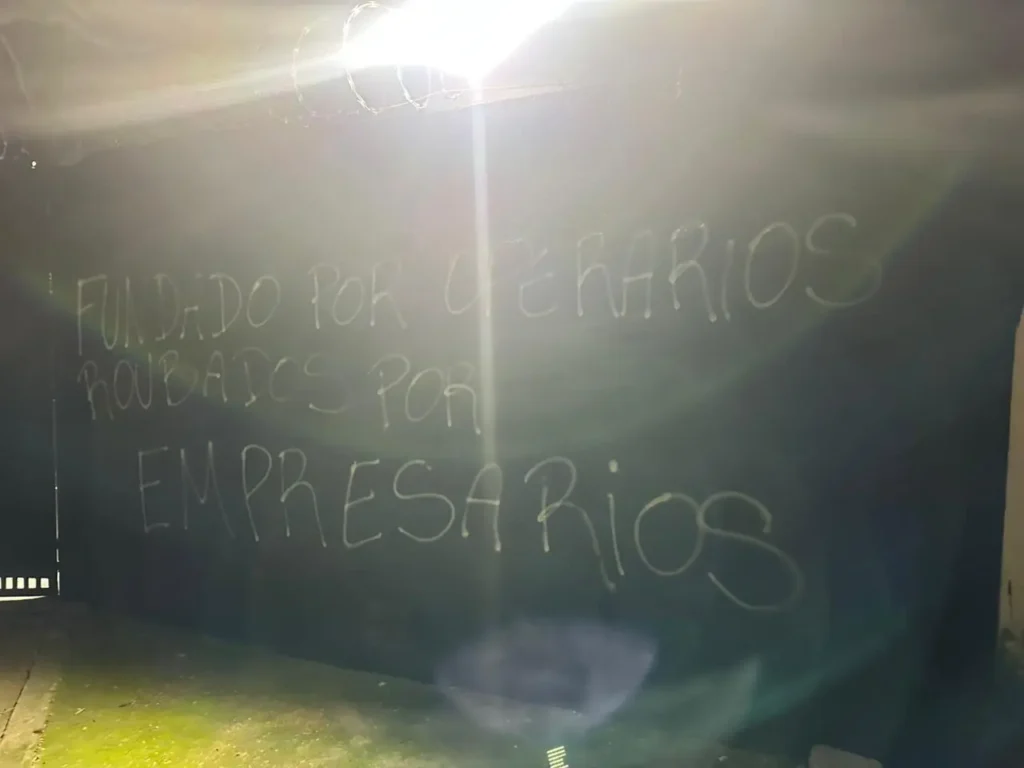 FUNDADO POR OPERARIOS
ROUBADOS POR
EMPRESARIOS